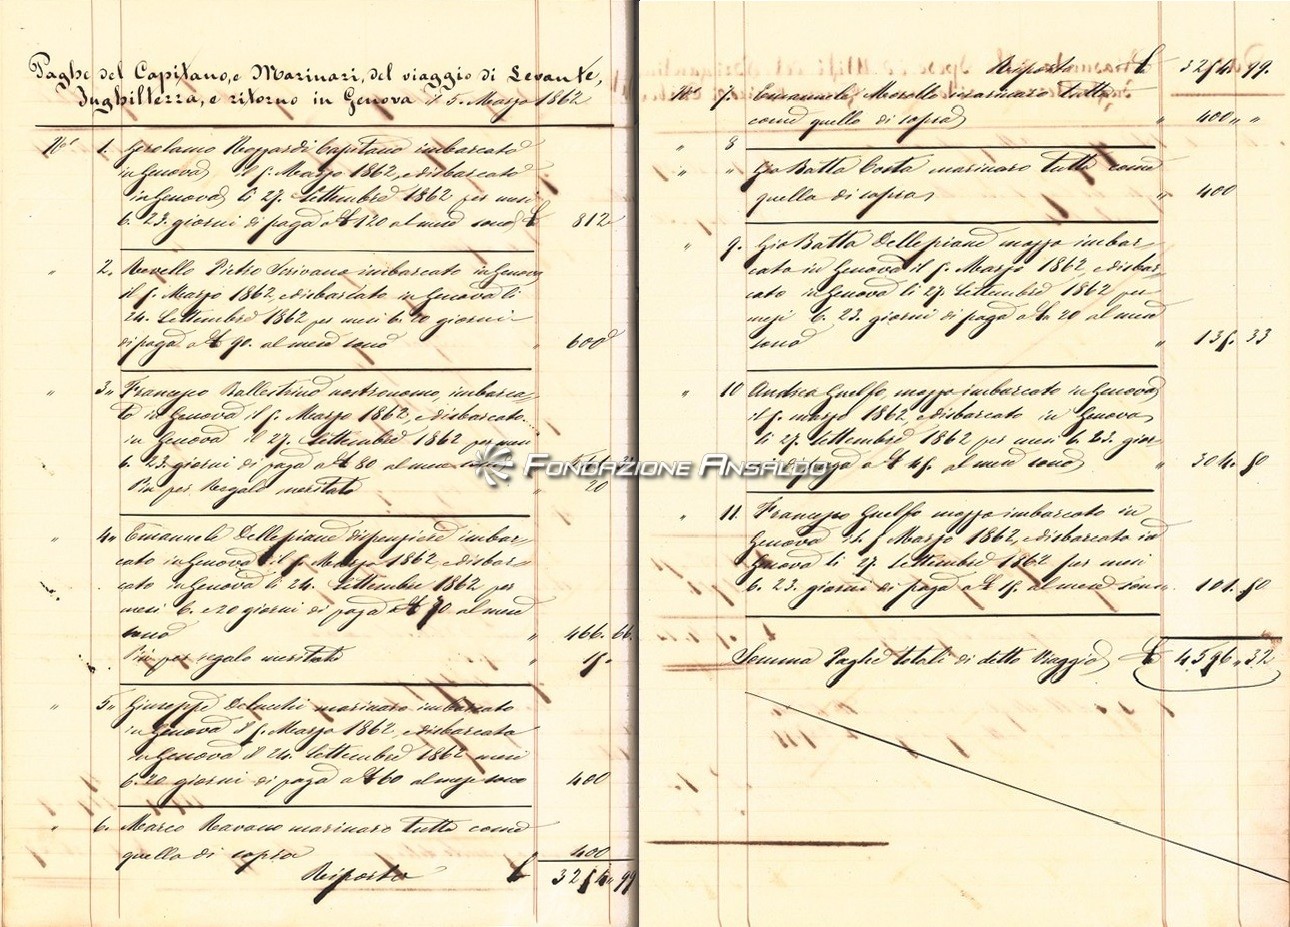 Paghe del Capitano, e Marinari, del viaggio di Levante,
Inghilterra, e ritorno in Genova il 5. Marzo 1862
N.º 1. Gerolamo Capitano imbarcato
in Genova il 5. Marzo 1862, e disbarcato
in Genova li 27. Settembre 1862 per mesi
6. 23. giorni di paga a £ 120 al mese sono £ 812
" 2. Revello Pietro Scrivano imbarcato in Genova
il 5. Marzo 1862, e disbarcato in Genova li
24. Settembre 1862 per mesi 6. 20 giorni
di paga a £ 90. al mese sono " 600
" 3" Francesco Ballestrino nostromo, imbarca-
to in Genova il 5. Marzo 1862, e disbarcato
in Genova il 27. Settembre 1862 per mesi
6. 23. giorni di paga a £ 80 al mese
Più per Regalo meritato " 20
" 4" Emanuele Dellepiane dispensiere imbar-
cato in Genova il 5. Marzo 1862, e disbar-
cato in Genova li 24. Settembre 1862 per
mesi 6. e 20 giorni di paga a £ 70 al mese
sono " 466. 66.
Più per regalo meritato " 15.
" 5" Giuseppe Delucchi marinaro imbarcato
in Genova il 5. Marzo 1862, e disbarcato
in Genova il 24. Settembre 1862 mesi
6. 20 giorni di paga a £ 60 al mese sono 400
" 6. Marco Ravano marinaro tutto come
quello di sopra 400
Riporto £ 3254. 99
Riporto £ 3254. 99.
N.º 7. Emanuele Morello marinaro tutto
come quello di sopra " 400 " "
" 8
" " Gio Batta Costa marinaro tutto come
quello di sopra " 400
" 9. Gio Batta Dellepiane mozzo imbar-
cato in Genova il 5. Marzo 1862, e disbar-
cato in Genova li 27. Settembre 1862 per
mesi 6. 23. giorni di paga a £n 20 al mese
sono " 135. 33
" 10 Andrea Guelfo, mozzo imbarcato in Genova
il 5. marzo 1862, e disbarcato in Genova
li 27. Settembre 1862 per mesi 6. 23. gior-
ni di paga a £ 45. al mese sono " 304. 50
" 11. Francesco Guelfo mozzo imbarcato in
Genova il 5 Marzo 1862, e disbarcato in
Genova li 27. Settembre 1862 per mesi
6. 23. giorni di paga a £ 15. al mese sono 101. 50
Somma Paghe totali di detto Viaggio £ 4596. 32
Fondazione Ansaldo